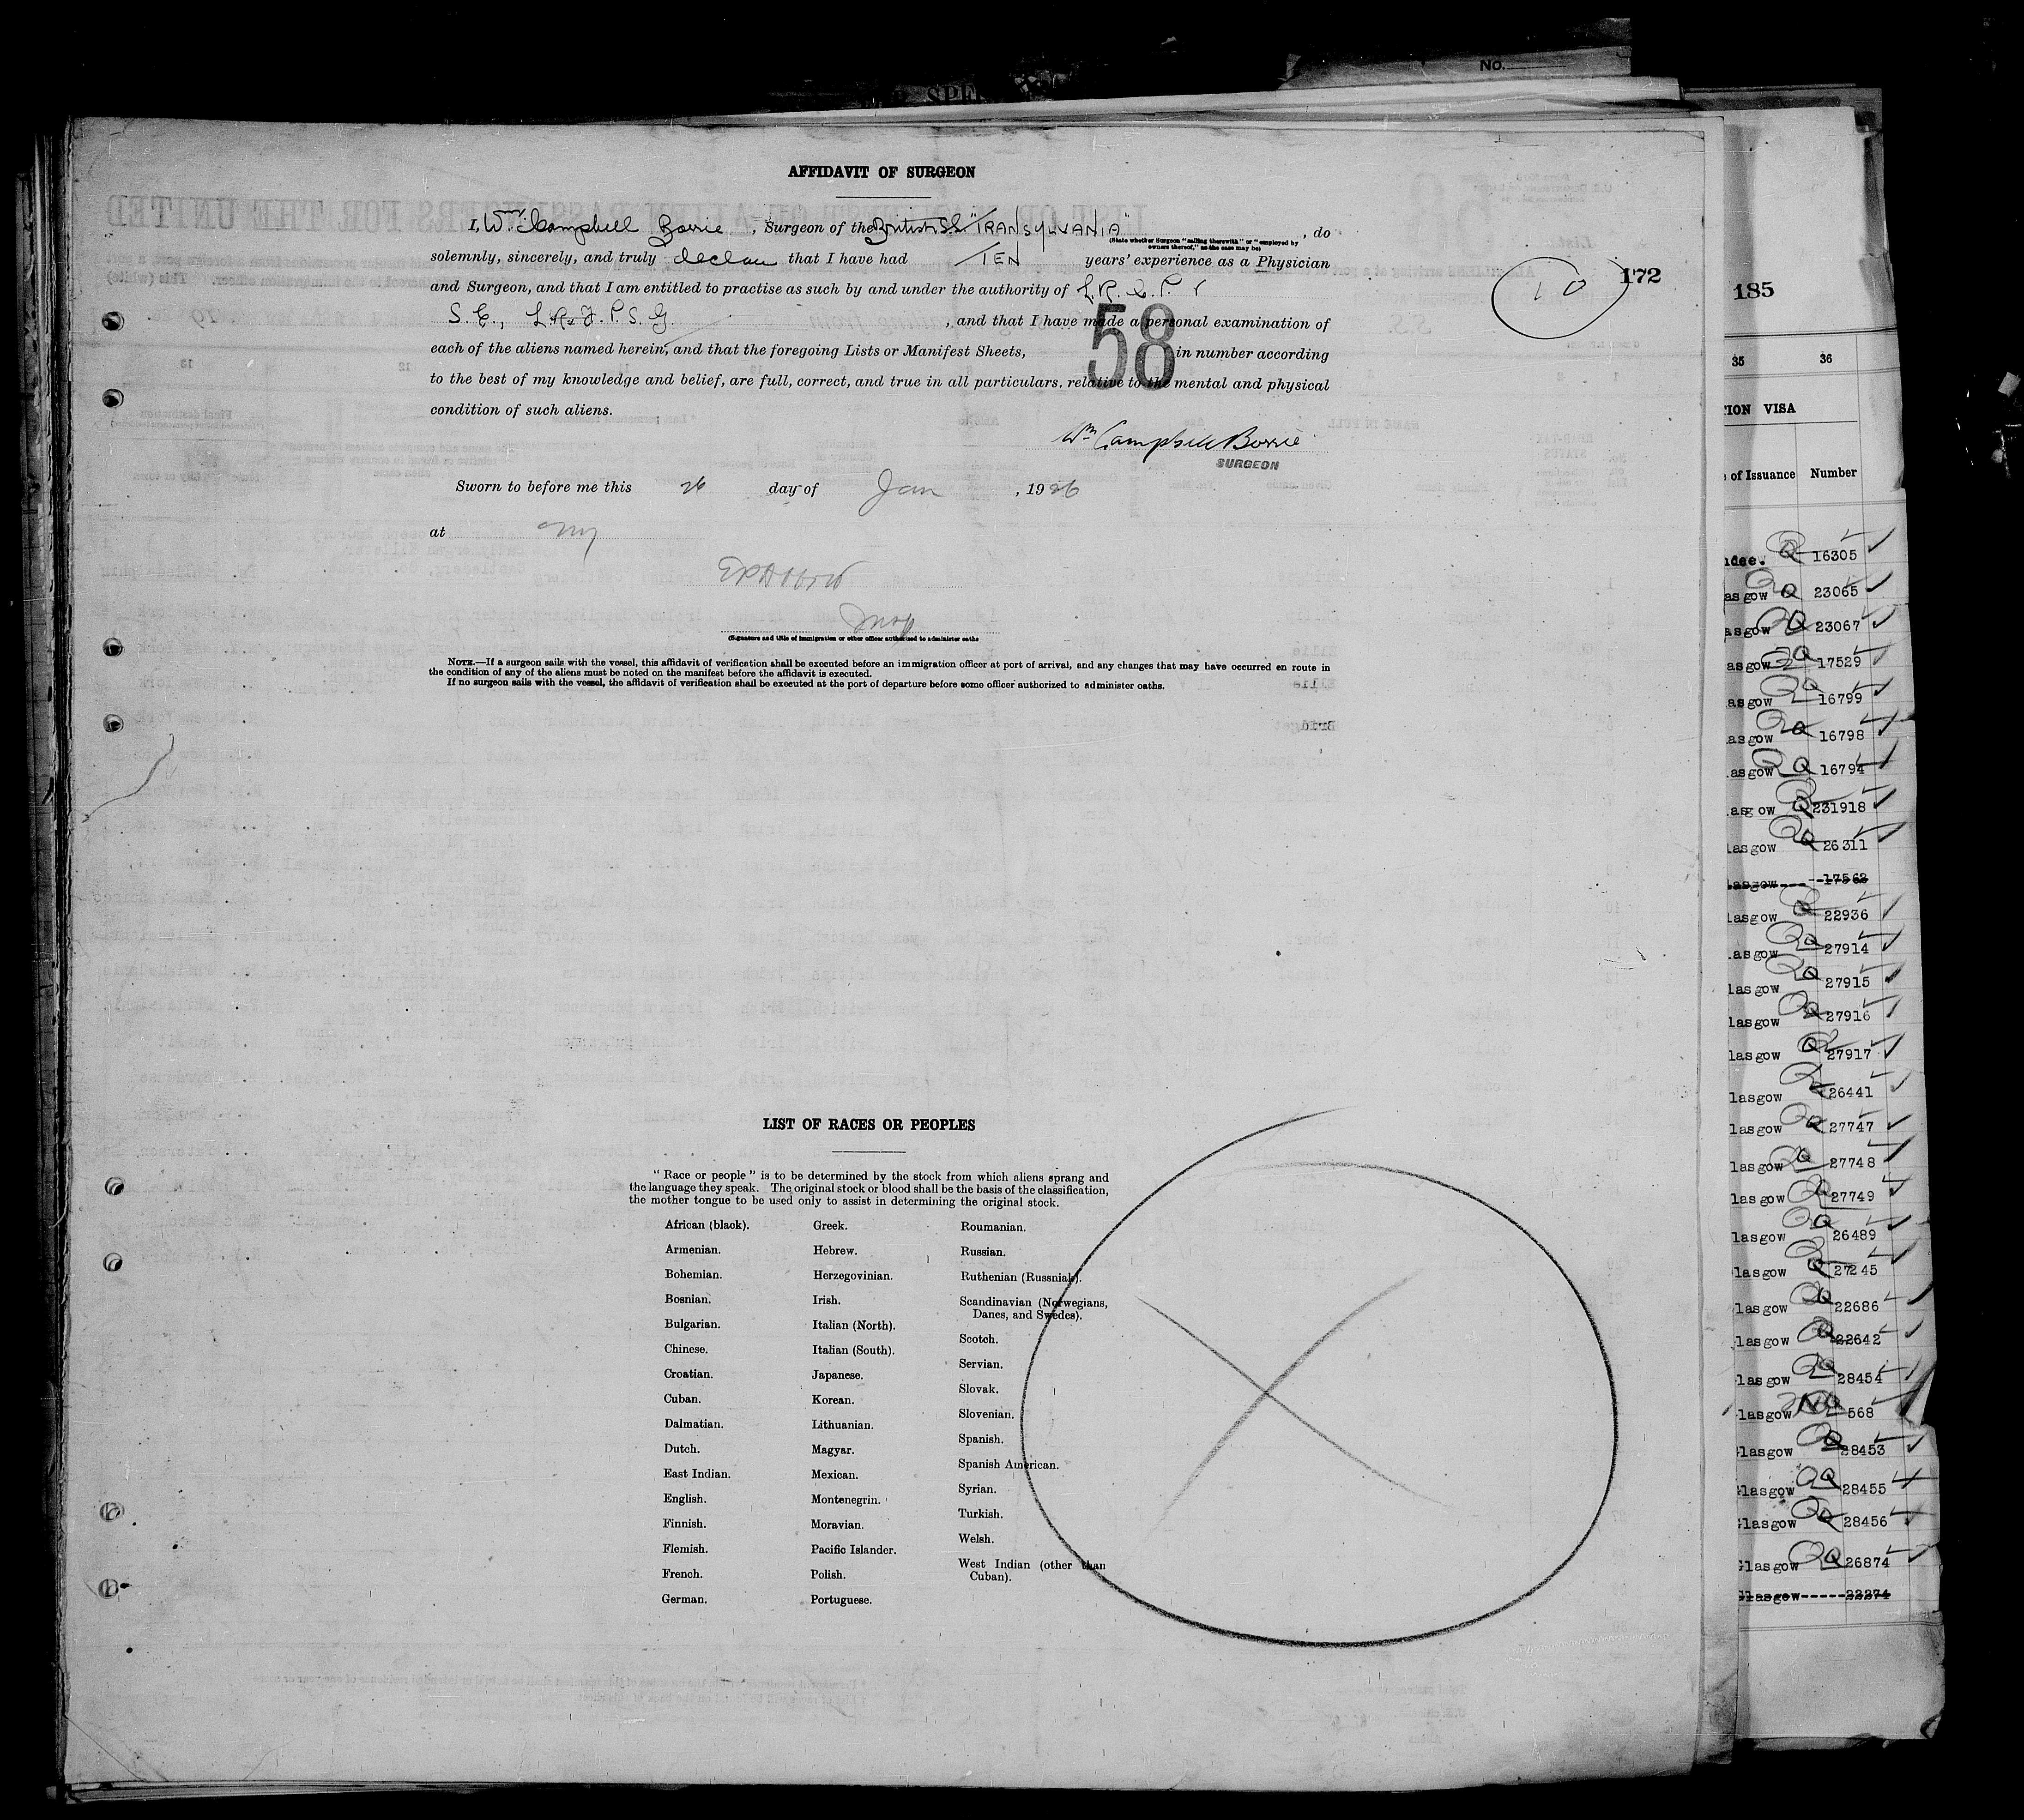 No.
AFFIDAVIT OF SURGEON
I, Wm Campbell Borrie, Surgeon of the British SS "TRANSYLVANIA", do
(State whether Surgeon "sailing therewith" or "employed by
owners thereof," as the case may be)
solemnly, sincerely, and truly declare that I have had TEN years' experience as a Physician
and Surgeon, and that I am entitled to practise as such by and under the authority of L.R.C.P.
S.E., L.R.F.P.S.G. , and that I have made a personal examination of
each of the aliens named herein, and that the foregoing Lists or Manifest Sheets, 58 in number according
to the best of my knowledge and belief, are full, correct, and true in all particulars, relative to the mental and physical
condition of such aliens.
Wm Campbell Borrie
SURGEON
Sworn to before me this 26 day of Jan , 1926
at NY
Insp
(Signature and title of immigration or other officer authorized to administer oaths
NOTE.—If a surgeon sails with the vessel, this affidavit of verification shall be executed before an immigration officer at port of arrival, and any changes that may have occurred en route in
the condition of any of the aliens must be noted on the manifest before the affidavit is executed.
If no surgeon sails with the vessel, the affidavit of verification shall be executed at the port of departure before some officer authorized to administer oaths.
10
172
LIST OF RACES OR PEOPLES
"Race or people" is to be determined by the stock from which aliens sprang and
the language they speak. The original stock or blood shall be the basis of the classification,
the mother tongue to be used only to assist in determining the original stock.
African (black).
Armenian.
Bohemian.
Bosnian.
Bulgarian.
Chinese.
Croatian.
Cuban.
Dalmatian.
Dutch.
East Indian.
English.
Finnish.
Flemish.
French.
German.
Greek.
Hebrew.
Herzegovinian.
Irish.
Italian (North).
Italian (South).
Japanese.
Korean.
Lithuanian.
Magyar.
Mexican.
Montenegrin.
Moravian.
Pacific Islander.
Polish.
Portuguese.
Roumanian.
Russian.
Ruthenian (Russniak).
Scandinavian (Norwegians,
Danes, and Swedes).
Scotch.
Servian.
Slovak.
Slovenian.
Spanish.
Spanish American.
Syrian.
Turkish.
Welsh.
West Indian (other than
Cuban).
185
35 36
TION VISA
of Issuance Number
ndee. Q 16305
asgow Q 23065
asgow Q 23067
asgow Q 17529
asgow Q 16799
asgow Q 16798
asgow Q 16794
asgow Q 231918
lasgow Q 26311
lasgow 17562
lasgow Q 22936
lasgow Q 27914
lasgow Q 27915
lasgow Q 27916
lasgow Q 27917
lasgow Q 26441
lasgow Q 27747
lasgow Q 27748
lasgow Q 27749
lasgow Q 26489
lasgow Q 27245
lasgow Q 22686
lasgow Q 22642
lasgow Q 28454
lasgow NQ 568
lasgow Q 28453
lasgow Q 28455
lasgow Q 28456
Glasgow Q 26874
Glasgow 22274